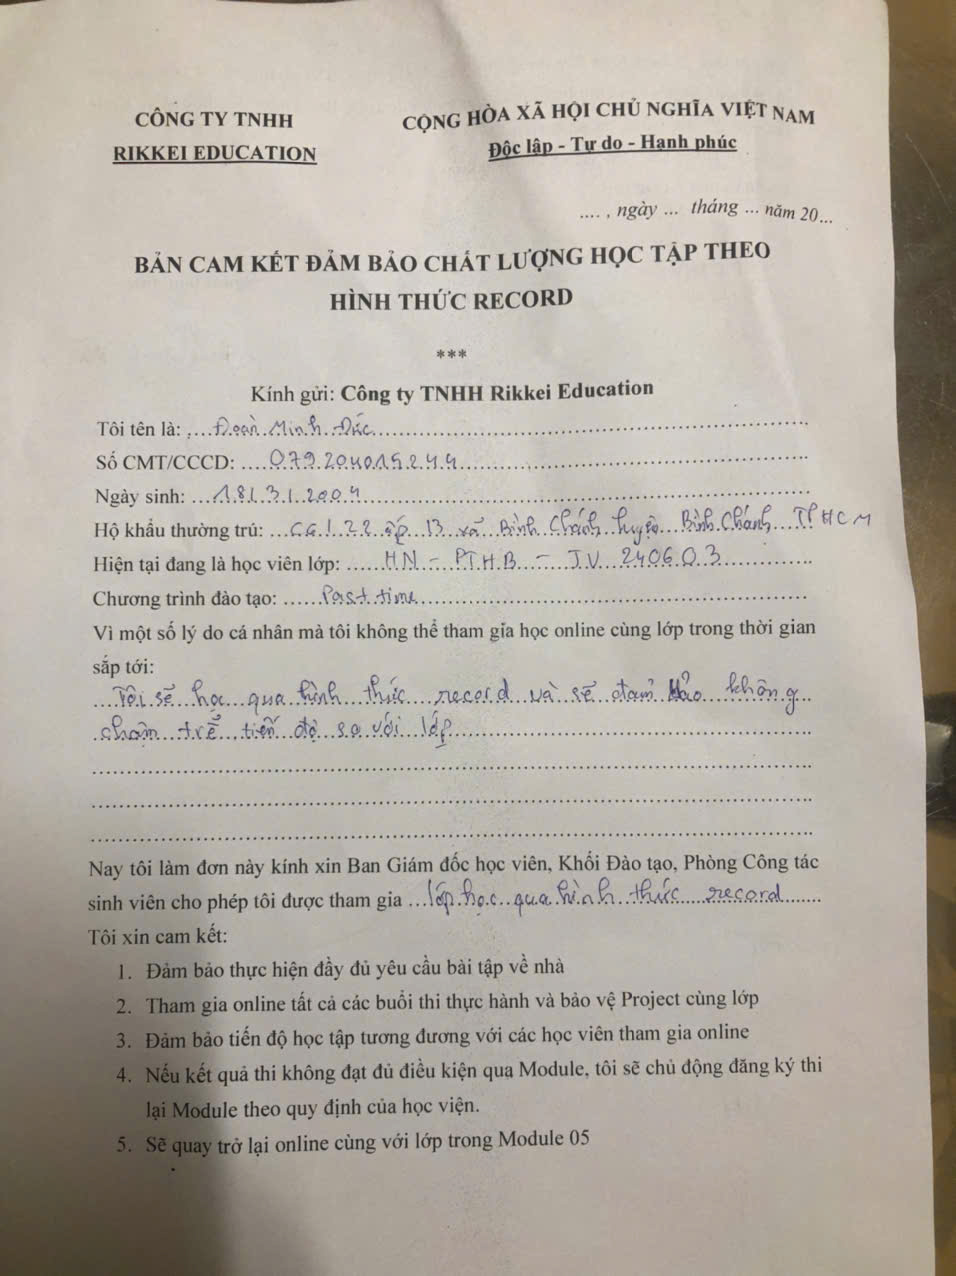 CÔNG TY TNHH
RIKKEI EDUCATION
CỘNG HÒA XÃ HỘI CHỦ NGHĨA VIỆT NAM
Độc lập - Tự do - Hạnh phúc
.... , ngày ... tháng ... năm 20...
BẢN CAM KẾT ĐẢM BẢO CHẤT LƯỢNG HỌC TẬP THEO
HÌNH THỨC RECORD
***
Kính gửi: Công ty TNHH Rikkei Education
Tôi tên là: Đoàn Minh Đức
Số CMT/CCCD: 079204015244
Ngày sinh: 18/3/2004
Hộ khẩu thường trú: C6/22 ấp 13 xã Bình Chánh huyện Bình Chánh TPHCM
Hiện tại đang là học viên lớp: HN - PTHB - JV 240603
Chương trình đào tạo: Part time
Vì một số lý do cá nhân mà tôi không thể tham gia học online cùng lớp trong thời gian
sắp tới:
Tôi sẽ học qua hình thức record và sẽ đảm bảo không
chậm trễ tiến độ so với lớp
Nay tôi làm đơn này kính xin Ban Giám đốc học viên, Khối Đào tạo, Phòng Công tác
sinh viên cho phép tôi được tham gia lớp học qua hình thức record
Tôi xin cam kết:
1. Đảm bảo thực hiện đầy đủ yêu cầu bài tập về nhà
2. Tham gia online tất cả các buổi thi thực hành và bảo vệ Project cùng lớp
3. Đảm bảo tiến độ học tập tương đương với các học viên tham gia online
4. Nếu kết quả thi không đạt đủ điều kiện qua Module, tôi sẽ chủ động đăng ký thi
lại Module theo quy định của học viện.
5. Sẽ quay trở lại online cùng với lớp trong Module 05